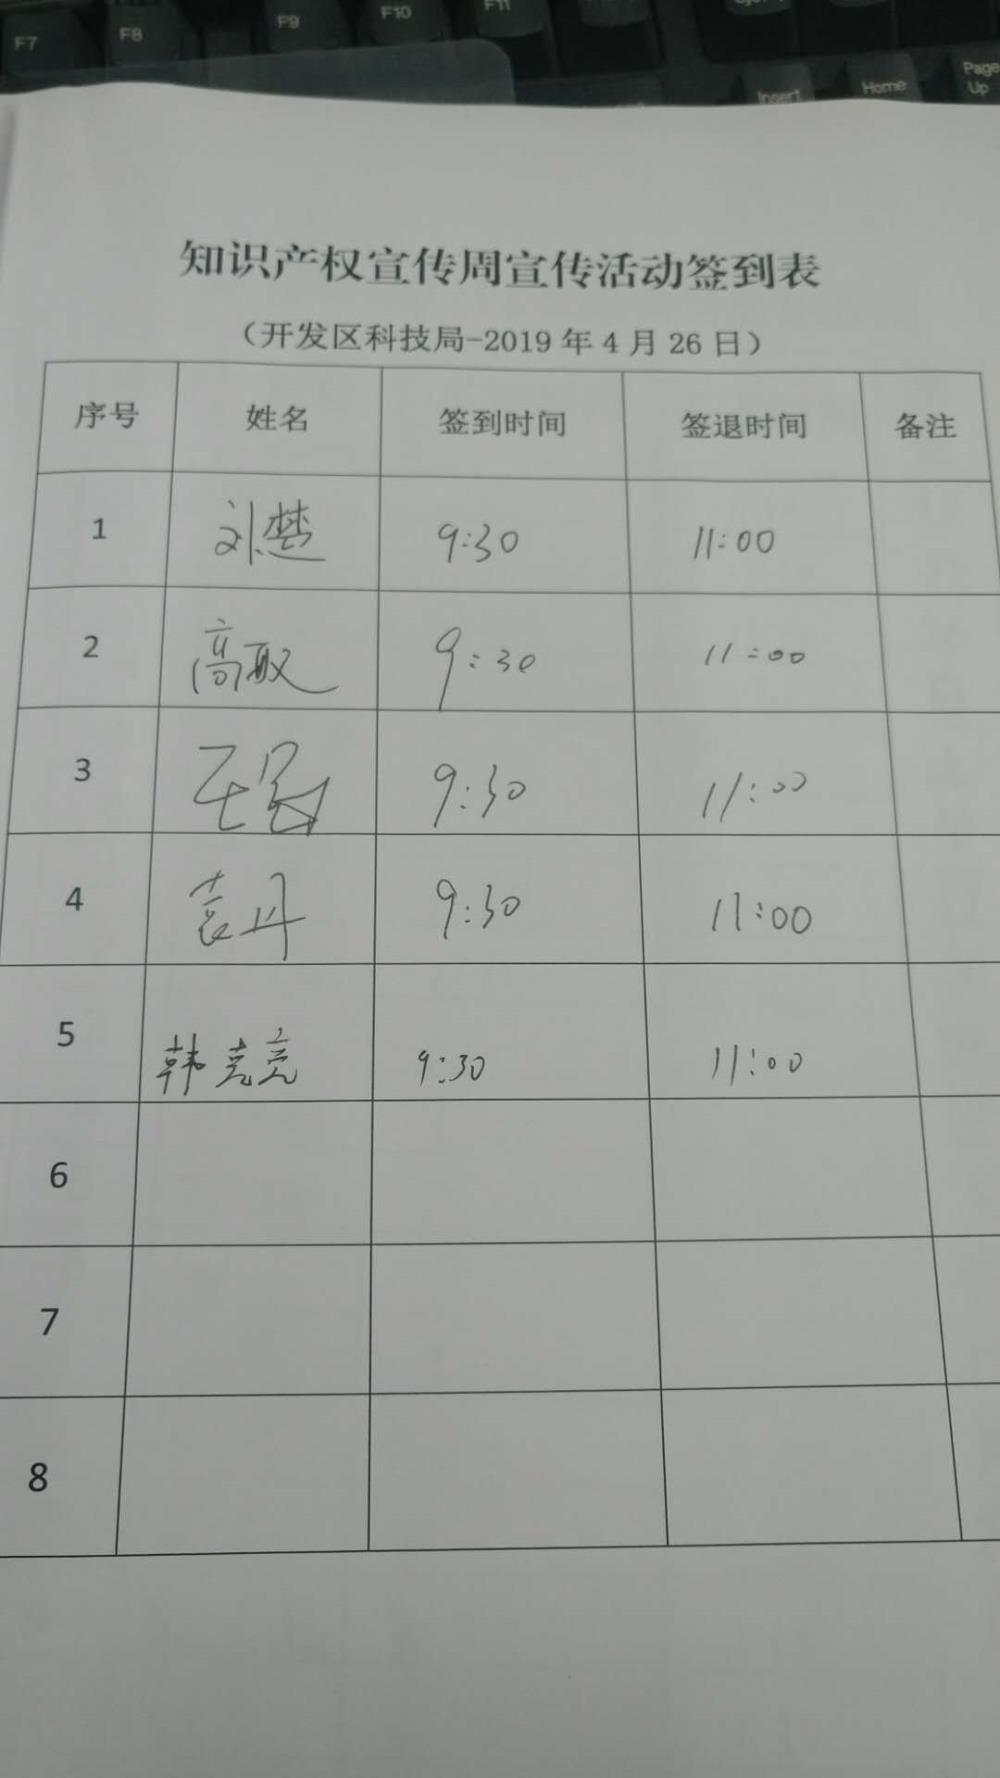 F7 F8 F9 F10 F11
Insert Home Page Up
知识产权宣传周宣传活动签到表
（开发区科技局-2019年4月26日）
序号 姓名 签到时间 签退时间 备注
1 刘楚 9:30 11:00
2 高取 9:30 11:00
3 9:30 11:00
4 袁丹 9:30 11:00
5 韩亮亮 9:30 11:00
6
7
8